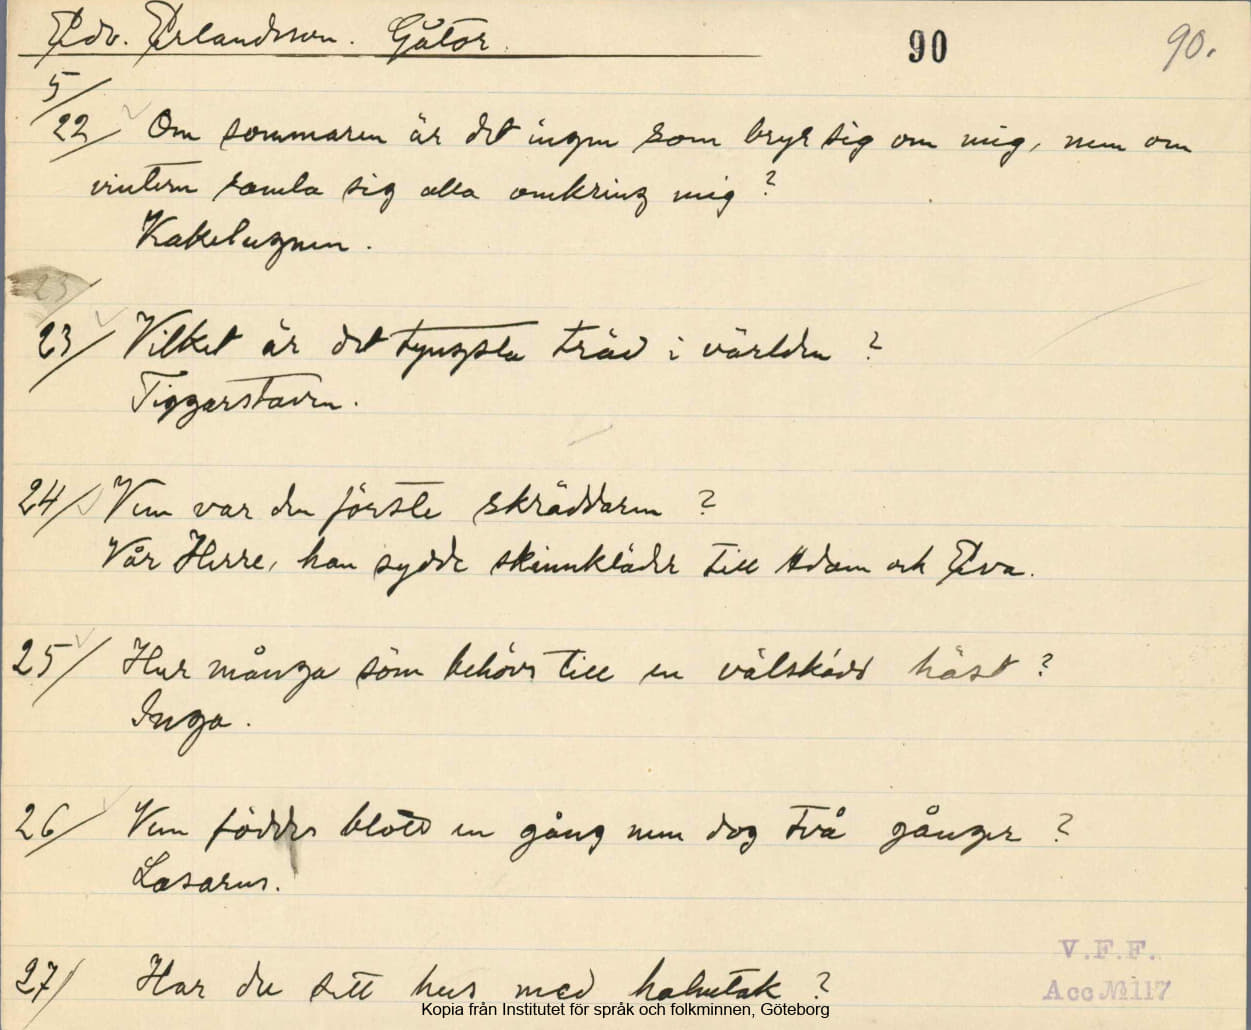 Edv. Erlandsson. Gåtor.
90
90.
5/
22/ Om sommaren är det ingen som bryr sig om mig, men om
vintern samla sig alla omkring mig?
Kakelugnen.
23
23/ Vilket är det tyngsta träd i världen?
Tiggarstaven.
24/ Vem var den förste skräddaren?
Vår Herre, han sydde skinnkläder till Adam och Eva.
25/ Hur många söm behövs till en välskodd häst?
Inga.
26/ Vem föddes blott en gång men dog två gånger?
Lasarus.
27/ Har du sett hus med halmtak?
V.F.F.
Acc № 117
Kopia från Institutet för språk och folkminnen, Göteborg